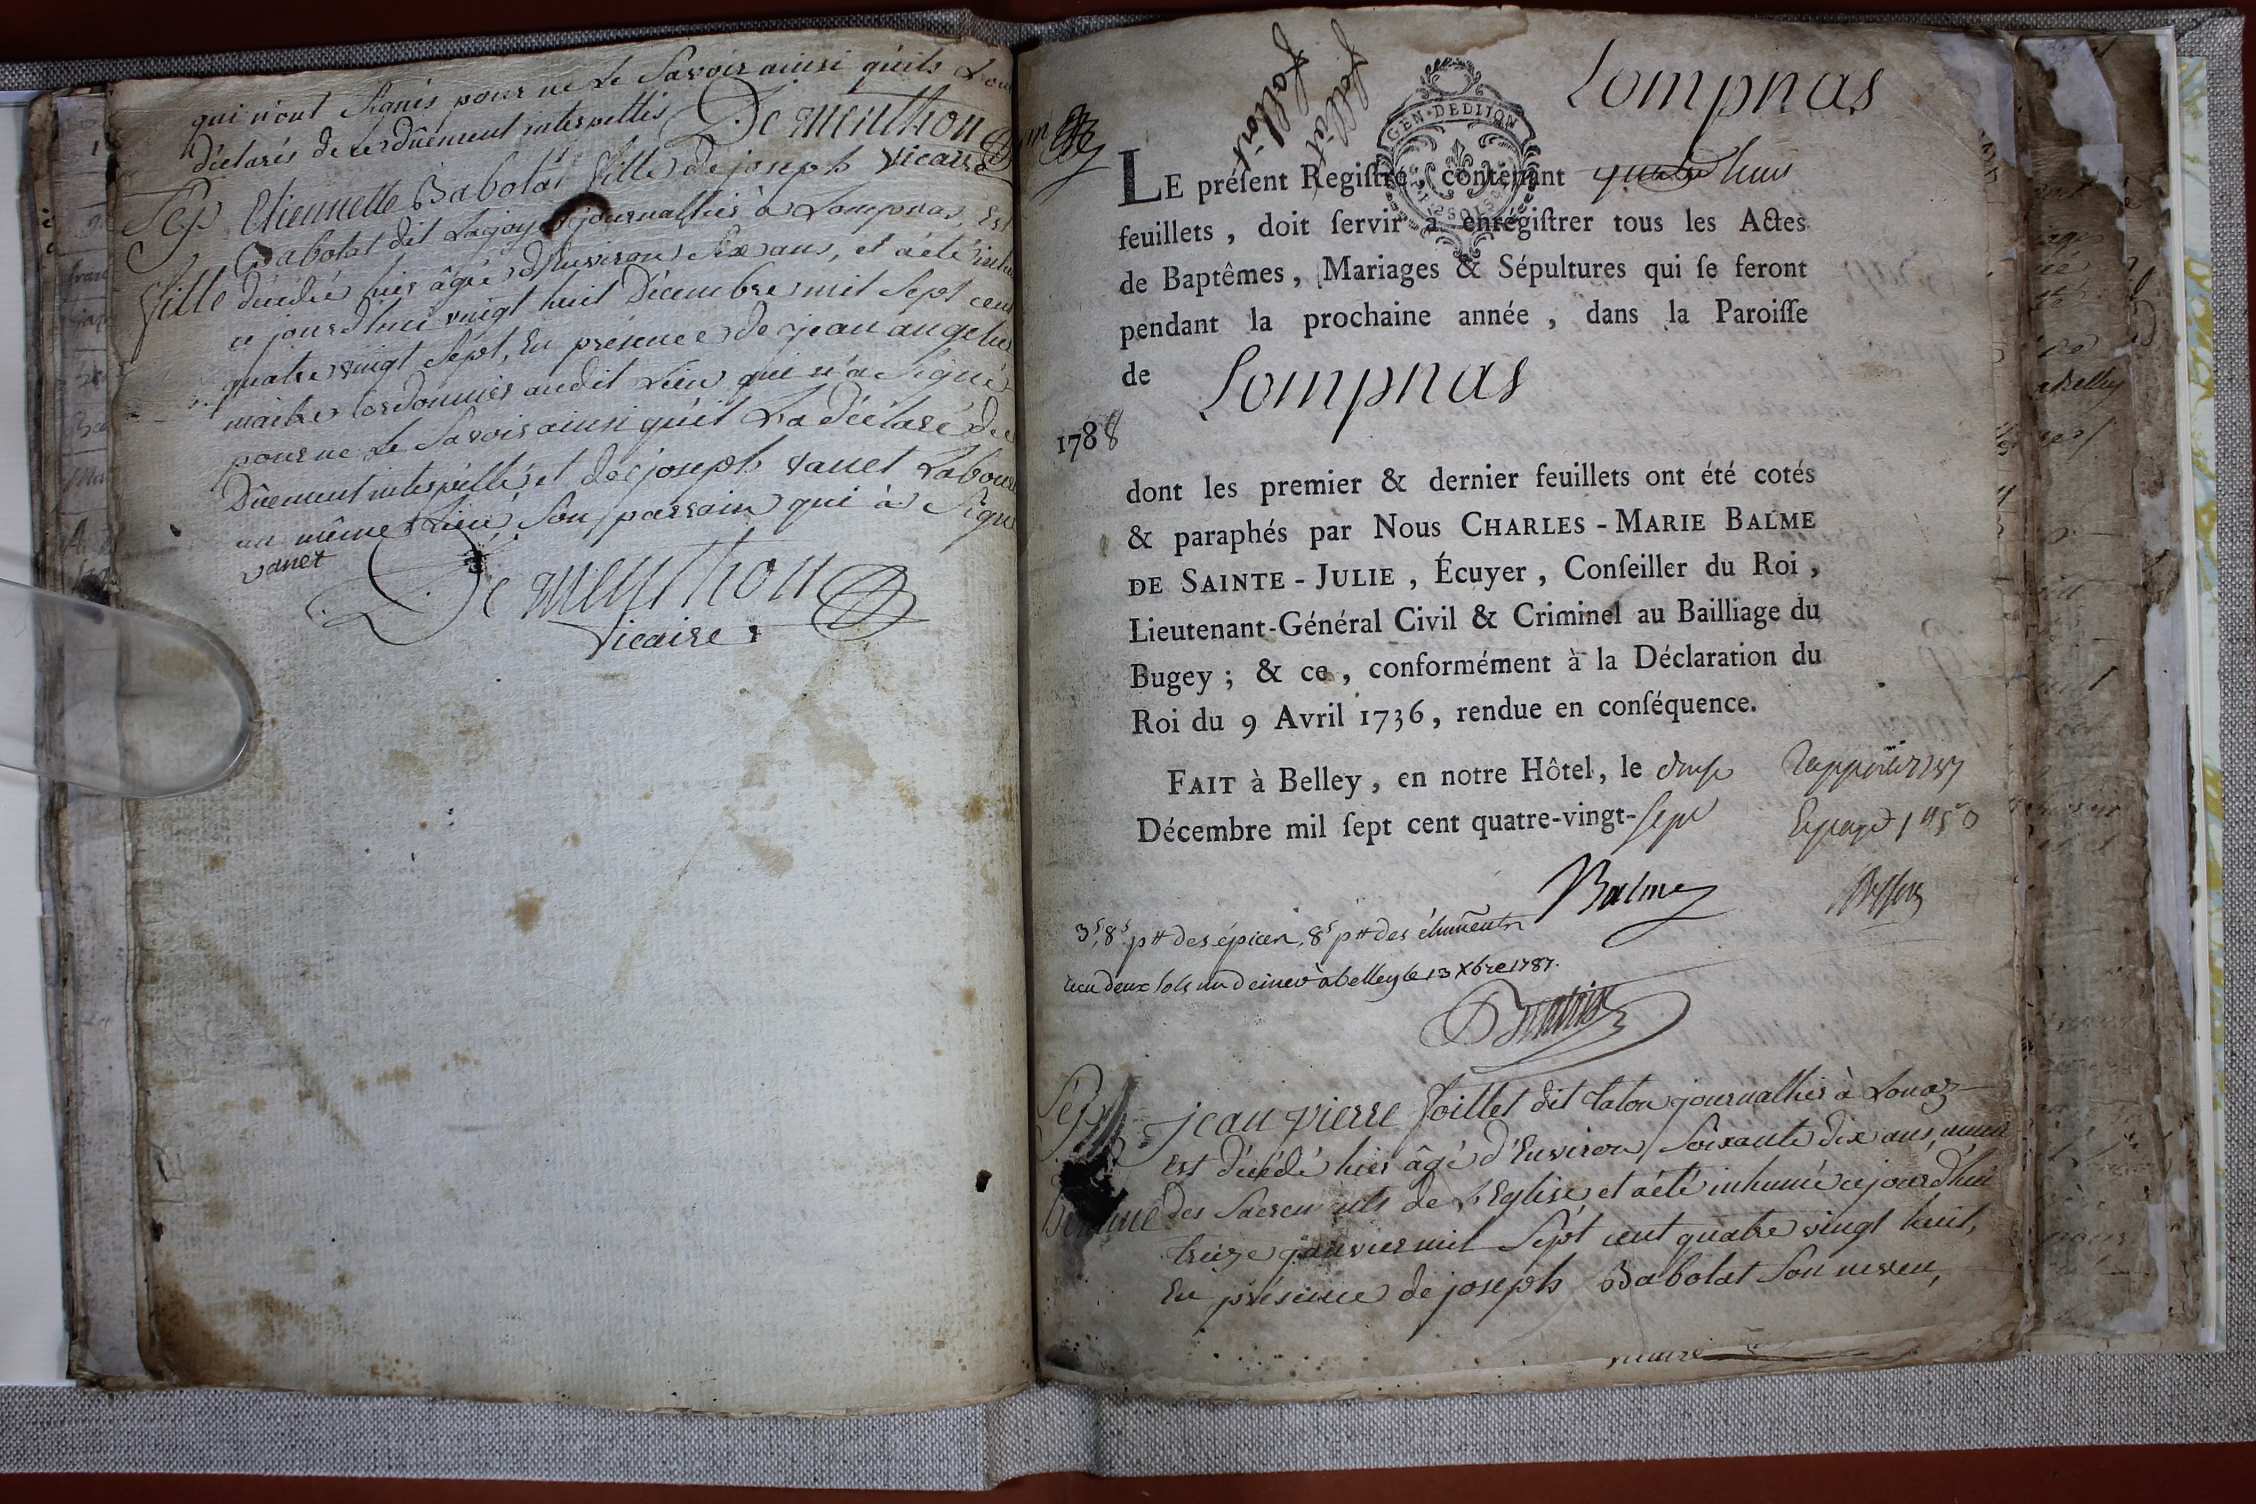 qui n'ont signés pour ne le Savoir ainsi qu'ils L'ont
déclarés de ce dûement interpellés De Menthon
vicaire
Sep Etiennette Babolat fille de joseph
Babolat dit Lajoye journallier à Lompnas, Est
fille décédée hier âgée d'Environ six ans, et a été
ce jourd'hui vingt huit Décembre mil Sept cent
quatre vingt Sept, En présence de jean
maitre Cordonnier audit Lieu qui n'a Signé
pour ne le Savoir ainsi qu'il La déclaré de
Dûement interpellé, et de joseph vanet Labour
au même Lieu, Son parrain qui à Signé
vanet
De Menthon
vicaire
Lompnas
GEN·DEDIION
LE préſent Regiſtre, contenant huit
feuillets, doit ſervir à enrégiſtrer tous les Actes
de Baptêmes, Mariages & Sépultures qui ſe feront
pendant la prochaine année, dans la Paroiſſe
de Lompnas
1788
dont les premier & dernier feuillets ont été cotés
& paraphés par Nous CHARLES-MARIE BALME
DE SAINTE-JULIE, Écuyer, Conſeiller du Roi,
Lieutenant-Général Civil & Criminel au Bailliage du
Bugey; & ce, conformément à la Déclaration du
Roi du 9 Avril 1736, rendue en conſéquence.
FAIT à Belley, en notre Hôtel, le
Décembre mil ſept cent quatre-vingt-sept
Balme
3s, 8s ptt des épices, 8s ptt des
deux sols un denier à belley le 13 Xbre 1787.
Sép jean pierre Joillet dit talon journallier à Lonaz
Est décédé hier âgé d'Environ Soixante dix ans, muni
homme des Sacrements de L'Eglise, et a été inhumé ce jourd'hui
treize janvier mil Sépt cent quatre vingt huit,
En présence de joseph Babolat Son neveu,